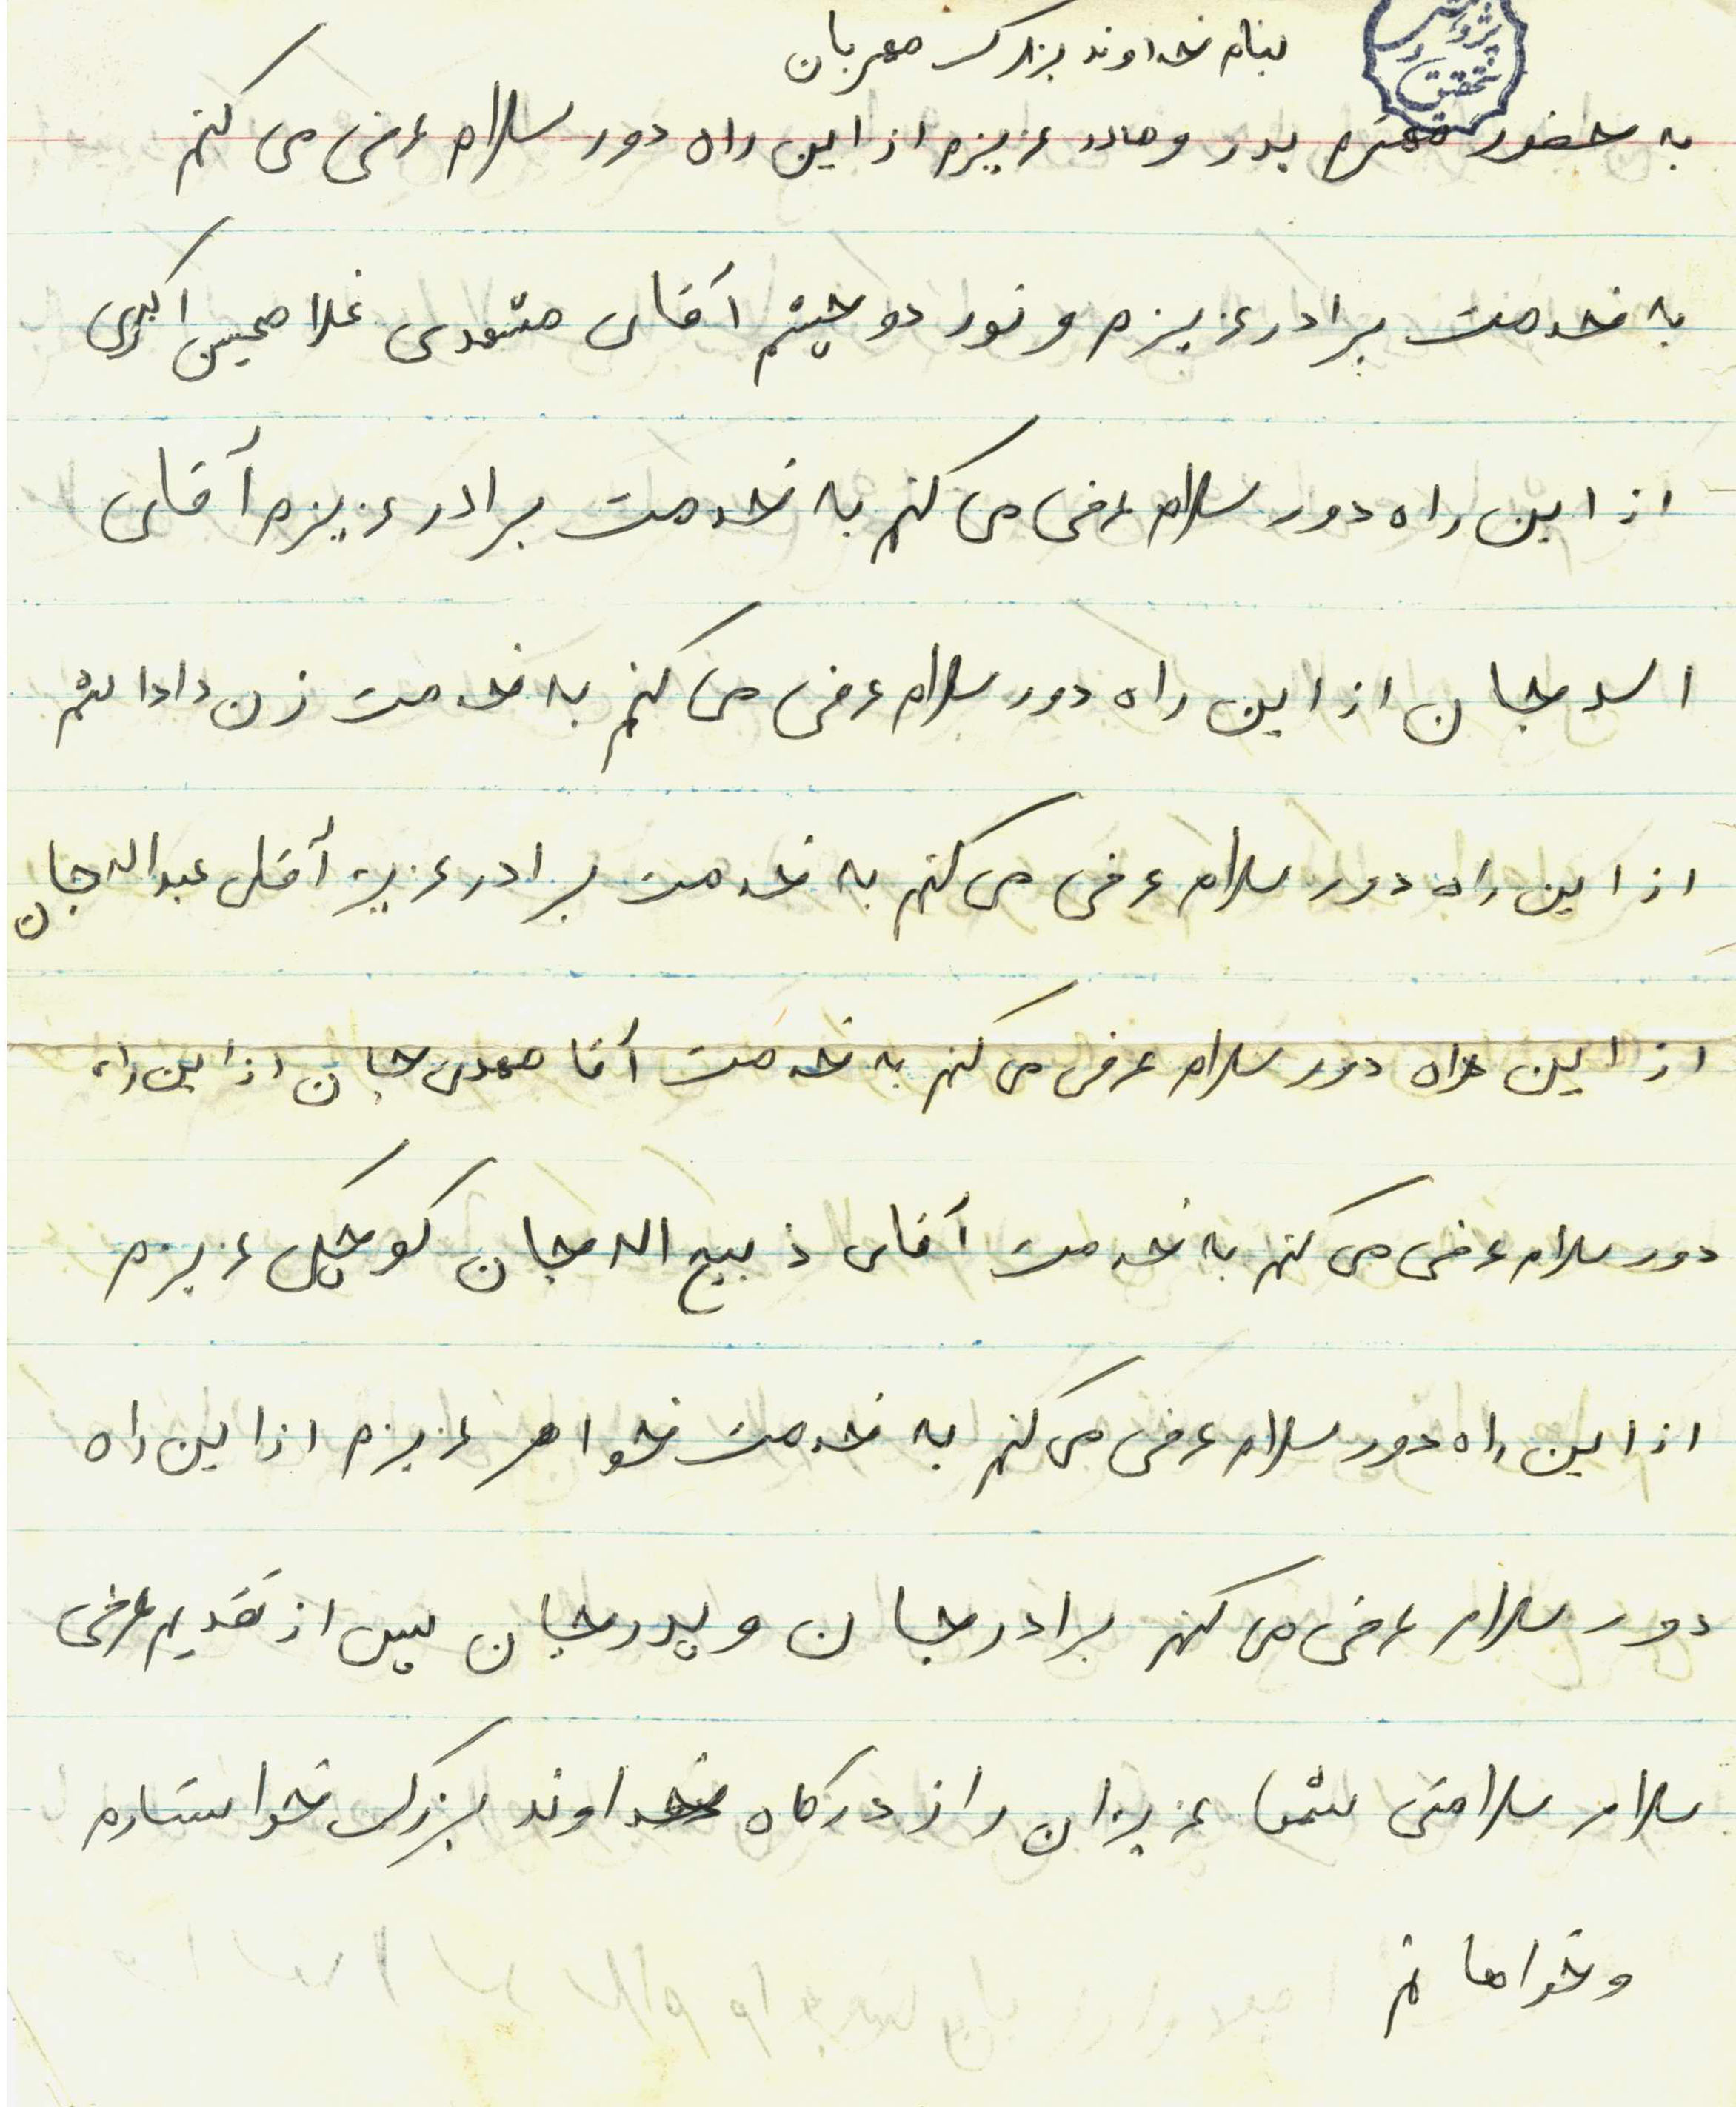 بنام خداوند بزرگ مهربان
پژوهش و
تحقیق
به حضور محترم پدر و مادر عزیزم از این راه دور سلام عرض می کنم
به خدمت برادر عزیزم و نور دو چشم آقای مشهدی غلامحسین اکبری
از این راه دور سلام عرض می کنم به خدمت برادر عزیزم آقای
اسد جان از این راه دور سلام عرض می کنم به خدمت زن داداشم
از این راه دور سلام عرض می کنم به خدمت برادر عزیز آقای عبداله جان
از این راه دور سلام عرض می کنم به خدمت آقا مهدی جان از این راه
دور سلام عرض می کنم به خدمت آقای ذبیح اله جان کوچکی عزیزم
از این راه دور سلام عرض می کنم به خدمت خواهر عزیزم از این راه
دور سلام عرض می کنم برادر جان و پدر جان پس از تقدیم عرض
سلام سلامتی شما عزیزان را از درگاه خداوند بزرگ خواستارم
و خواهانم